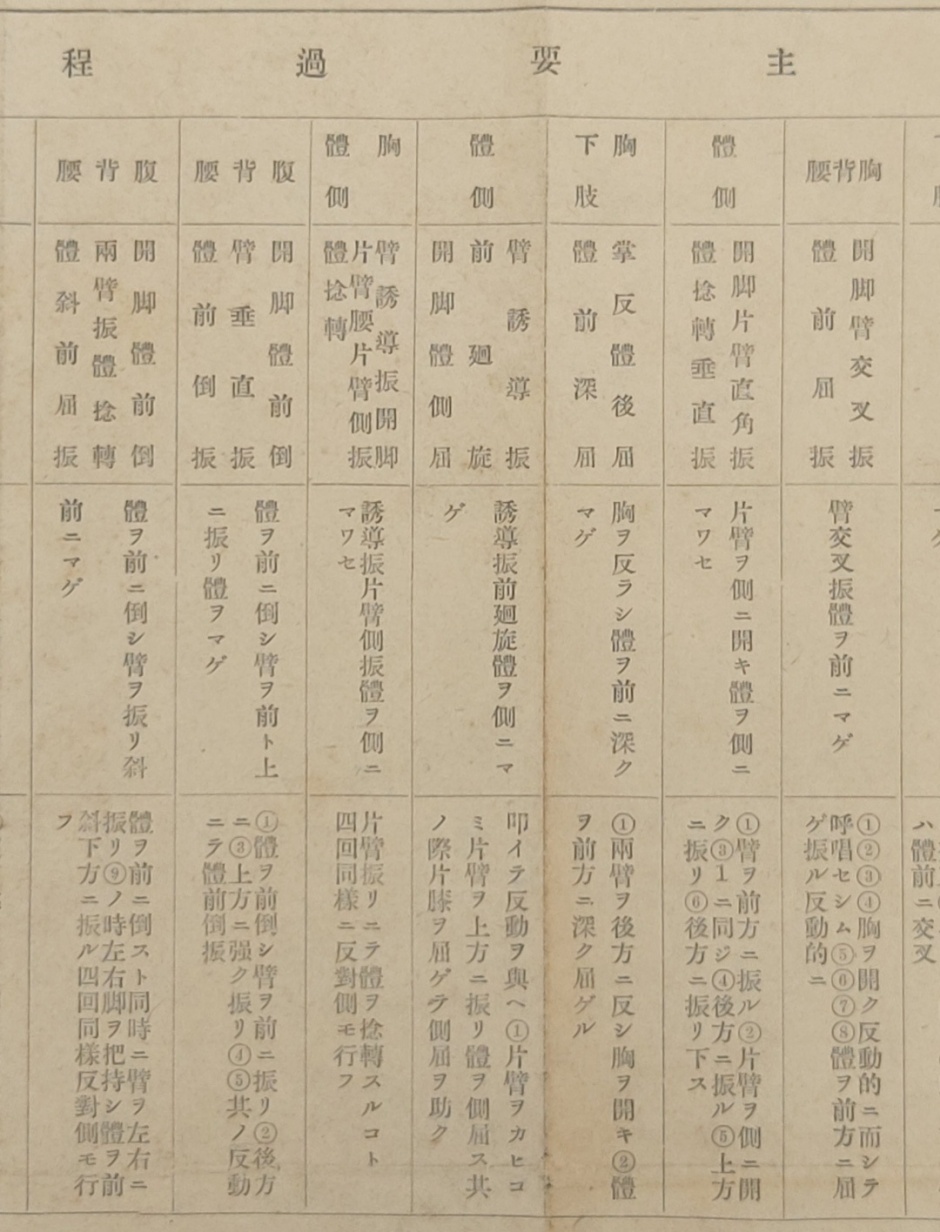 主要過程
胸背腰
開脚臂交叉振
體前屈振
臂交叉振體ヲ前ニマゲ
①②③④胸ヲ開ク反動的ニ而シテ
呼唱セシム⑤⑥⑦⑧體ヲ前方ニ屈
ゲ振ル反動的ニ
體側
開脚片臂直角振
體捻轉垂直振
片臂ヲ側ニ開キ體ヲ側ニ
マワセ
①臂ヲ前方ニ振ル②片臂ヲ側ニ開
ク③1ニ同ジ④後方ニ振ル⑤上方
ニ振リ⑥後方ニ振リ下ス
胸
下肢
掌反體後屈
體前深屈
胸ヲ反ラシ體ヲ前ニ深ク
マゲ
①兩臂ヲ後方ニ反シ胸ヲ開キ②體
ヲ前方ニ深ク屈ゲル
體側
臂誘導振
前廻旋
開脚體側屈
誘導振前廻旋體ヲ側ニマ
ゲ
叩イテ反動ヲ與ヘ①片臂ヲカヒコ
ミ片臂ヲ上方ニ振リ體ヲ側屈ス共
ノ際片膝ヲ屈ゲテ側屈ヲ助ク
胸
體側
臂誘導振開脚
片臂腰片臂側振
體捻轉
誘導振片臂側振體ヲ側ニ
マワセ
片臂振リニテ體ヲ捻轉スルコト
四回同樣ニ反對側モ行フ
腹背腰
開脚體前倒
臂垂直振
體前倒振
體ヲ前ニ倒シ臂ヲ前ト上
ニ振リ體ヲマゲ
①體ヲ前倒シ臂ヲ前ニ振リ②後方
ニ③上方ニ强ク振リ④⑤共ノ反動
ニテ體前倒振
腹背腰
開脚體前倒
兩臂振體捻轉
體斜前屈振
體ヲ前ニ倒シ臂ヲ振リ斜
前ニマゲ
體ヲ前ニ倒スト同時ニ臂ヲ左右ニ
振リ⑨ノ時左右脚ヲ把持シ體ヲ前
斜下方ニ振ル四回同樣反對側モ行
フ